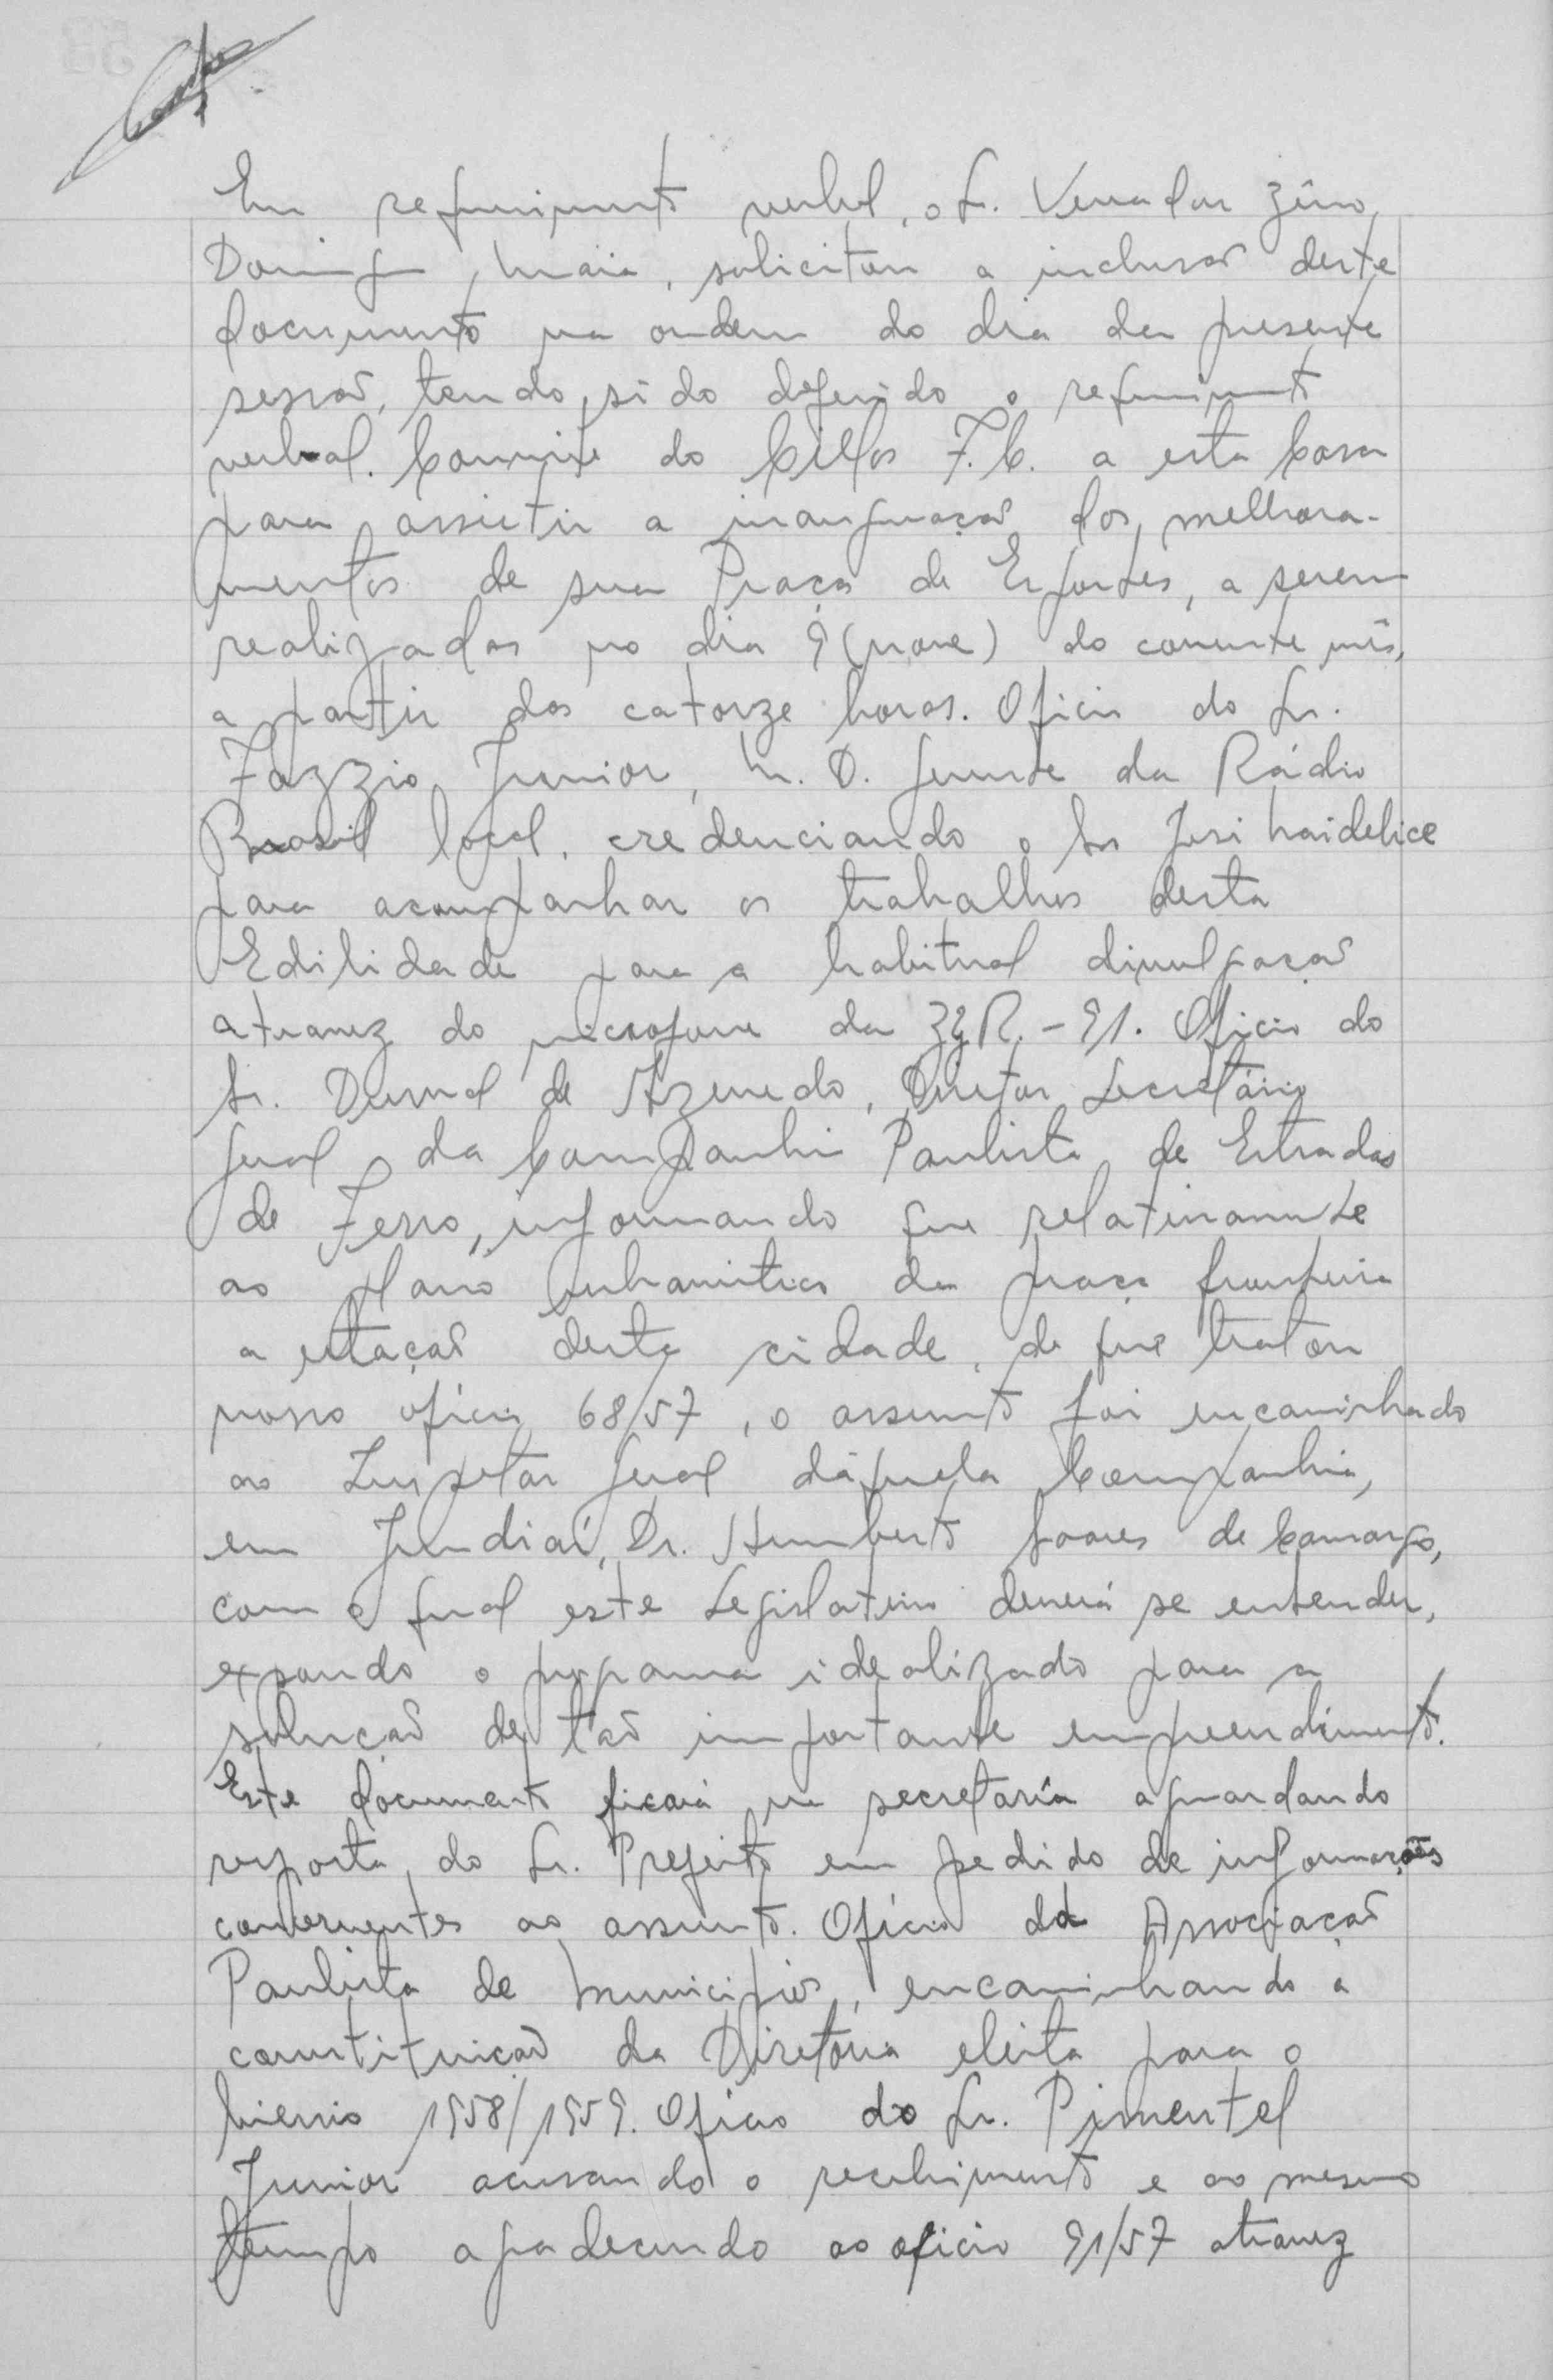 Em requerimento verbal, o Sr. Vereador Zêno
Domingos Maia, solicitou a inclusão deste
documento na ordem do dia da presente
sessão, tendo sido deferido o requerimento
verbal. Convite do Cillos F.C. a esta Casa
para assistir a inauguração dos melhora-
mentos de sua Praça de Esportes, a serem
realizadas no dia 9 (nove) do corrente mês,
a partir das catorze horas. Oficio do Sr.
Fazzio Junior, M. D. Gerente da Rádio
Brasil local, credenciando o Sr José
para acompanhar os trabalhos desta
Edilidade para a habitual divulgação
atravez do microfone da ZYR.-91. Oficio do
Sr. Durval de Azevedo, Diretor Secretário
Geral da Companhia Paulista de Estradas
de Ferro, informando que relativamente
ao plano urbanistico da praça fronteira
a estação desta cidade, de que tratou
nosso oficio 68/57, o assunto foi encaminhado
ao Inspetor Geral daquela Companhia,
em Jundiaí, Dr. Humberto Soares de Camargo,
com o qual este Legislativo deverá se entender,
expondo o programa idealizado para a
solução de tão importante empreendimento.
Este documento ficará na secretaria aguardando
resposta do Sr. Prefeito em pedido de informações
concernentes ao assunto. Ofício da Associação
Paulista de Municipios, encaminhando a
constituição da Diretoria eleita para o
bienio 1958/1959. Oficio do Sr. Pimentel
Junior acusando o recebimento e ao mesmo
tempo agradecendo ao oficio 91/57 atravez